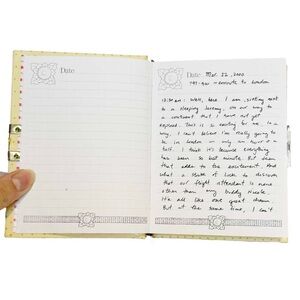 Date
Date Mar. 22, 2000
en route to London
12:30 am: Well, here I am, sitting next
to a sleeping Jeremy. On our way to
a continent that I have not yet
explored. This is so exciting for me. In a
way, I can't believe I'm really going to
be in London in only an hour or a
half. I think it's because everything
has been so last minute. But then
that adds to the excitement. And
what a stroke of luck to discover
that our flight attendant is none
other than my buddy Nicole.
It's all like one great dream.
But at the same time, I can't